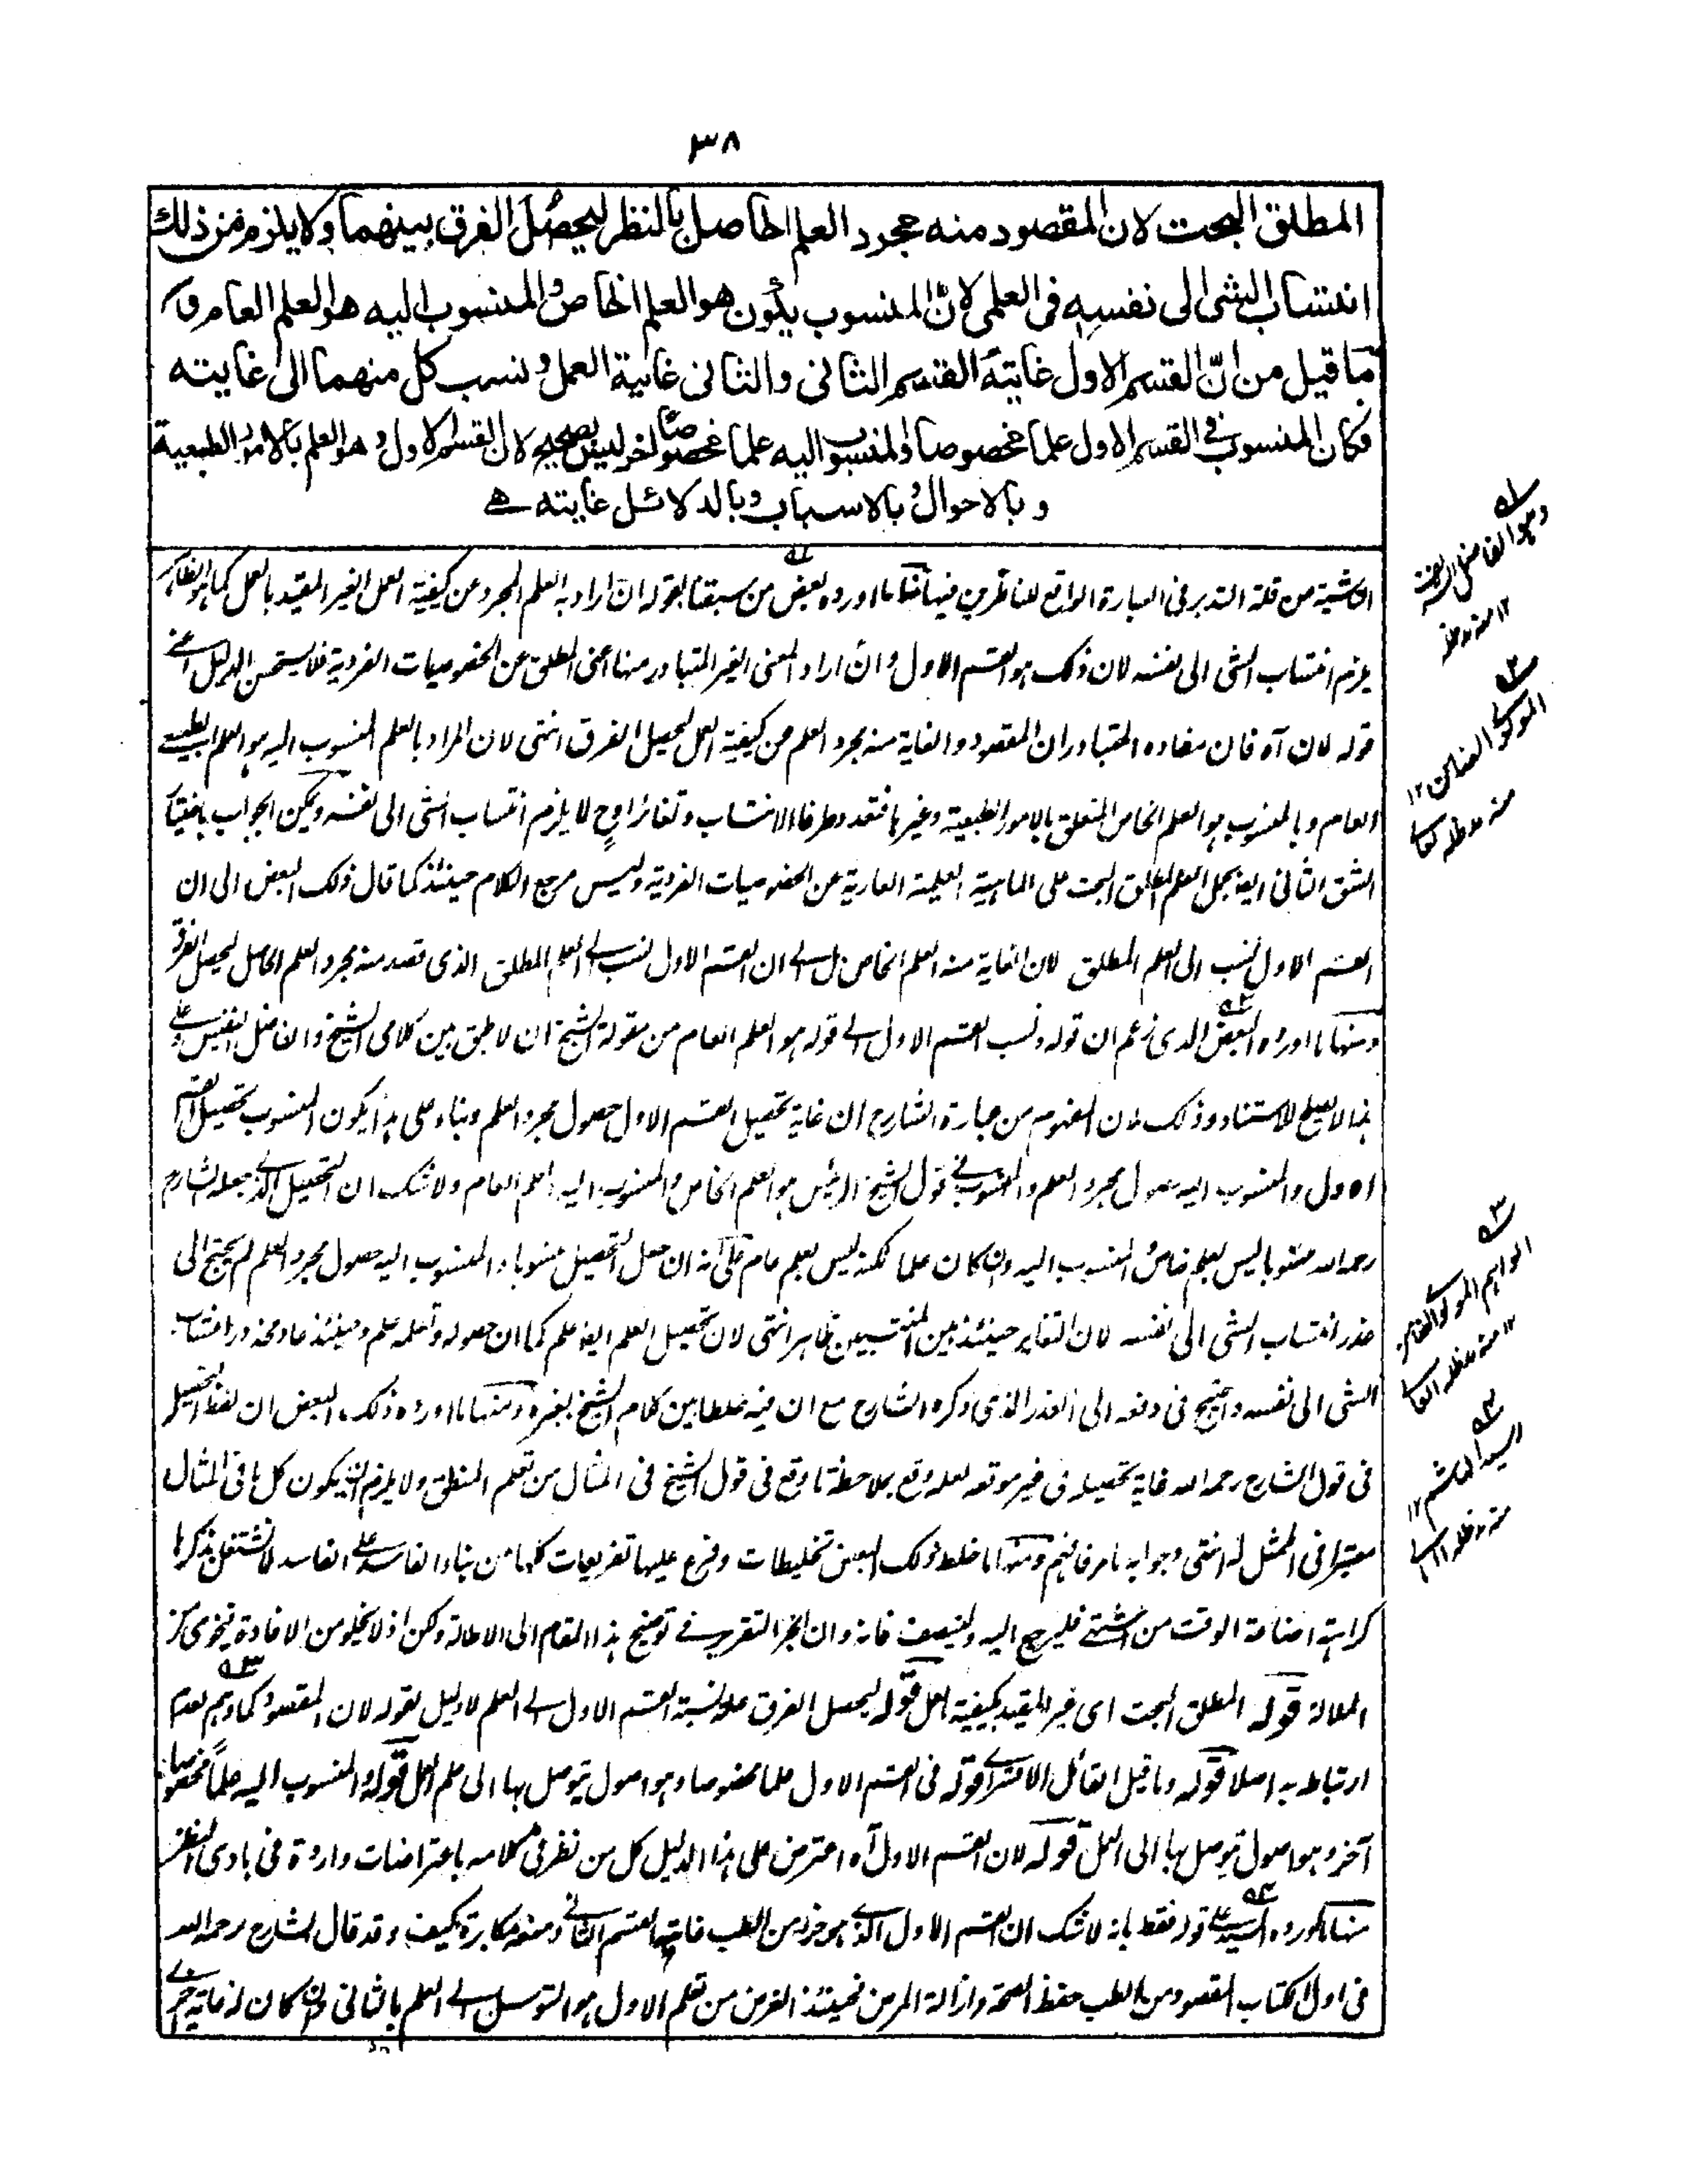 ٣٨
المطلق البحت لان المقصود منه مجرد العلم الحاصل بالنظر ليحصل الفرق بينهما ولا يلزم من ذلك
انتساب الشئ الى نفسه فى العلمى لانّ المنسوب يكون هو العلم الخاص والمنسوب اليه هو العلم العام و
ما قيل من انّ القسم الاول غايته القسم الثانى والثانى غايته العمل ونسب كل منهما الى غايته
فكان المنسوب فى القسم الاول علما مخصوصا والمنسوب اليه علما مخصوصا اخر ليس بصحيح لان القسم الاول وهو العلم بالامور الطبعية
و بالاحوال و بالاسباب و بالدلائل غايته هى
الحاشية من قلة التدبر فى العبارة الواقع للناظرين فيها منها ما اورده بعض من سبقنا بقوله ان اراد به العلم المجرد عن كيفية العمل الغير المقيد بالعمل كما هو الظاهر
يلزم انتساب الشئ الى نفسه لان ذلك هو القسم الاول وان اراد المعنى الغير المتبادر منها اعنى المطلق عن الخصوصيات الفردية فلا يستحسن الدليل اعنى
قوله لان آه فان مفاده المتبادر ان المقصود والغاية منه مجرد العلم من كيفية العمل ليحصل الفرق انتهى لان المراد بالعلم المنسوب اليه هو العلم
العام وبالمنسوب هو العلم الخاص المتعلق بالامور الطبيعية وغيرها فتعدد طرفا الانتساب وتغائرا وح لا يلزم انتساب الشئ الى نفسه ويمكن الجواب باختيار
الشق الثانى ايضا بحمل العلم المطلق البحت على الماهية العلمية العارية عن الخصوصيات الفردية وليس مرجع الكلام حينئذ كما قال ذلك البعض الى ان
القسم الاول نسب الى العلم المطلق لان الغاية منه العلم الخاص بل الى ان القسم الاول نسب الى العلم المطلق الذى قصد منه مجرد العلم الحاصل ليحصل الفرق
ومنها ما اورده البعض الذى زعم ان قوله ونسب القسم الاول الى قوله هو العلم العام من مقولة الشيخ ان لا طبق بين كلامى الشيخ والفاضل النفيس على
هذا لا يصلح للاستناد وذلك لان المفهوم من عبارة الشارح ان غاية تحصيل القسم الاول حصول مجرد العلم وبناء على هذا يكون المنسوب تحصيل القسم
الاول والمنسوب اليه حصول مجرد العلم والمنسوب فى قول الشيخ الرئيس هو العلم الخاص والمنسوب اليه العلم العام ولا شك ان التحصيل الذى جعله الشارح
رحمه الله منسوبا ليس بعلم خاص والمنسوب اليه وان كان علما لكنه ليس بعلم عام على انه ان جعل التحصيل منسوبا والمنسوب اليه حصول مجرد العلم لم يحتج الى
عذر انتساب الشئ الى نفسه لان التغاير حينئذ بين المنتسبين ظاهر انتهى لان تحصيل العلم ايضا علم كما ان حصوله وتعلمه علم وحينئذ عاد محذور انتساب
الشئ الى نفسه واحتيج فى دفعه الى العذر الذى ذكره الشارح مع ان فيه خلطا بين كلام الشيخ بغيره ومنها ما اورده ذلك البعض ان لفظ التحصيل
فى قول الشارح رحمه الله غاية تحصيله فى غير موقعه لعله وقع بملاحظة ما وقع فى قول الشيخ فى المثال من تعلم المنطق ولا يلزم ان يكون كل ما فى المثال
معتبرا فى الممثل له انتهى وجوابه ما مر فافهم ومنها ما خلط ذلك البعض تخليطات وفرع عليها تفريعات كلها من بناء الفاسد على الفاسد لا نشتغل بذكرها
كراهية اضاعة الوقت من اشتهى فليرجع اليه ولينصف فانه وان انجر التقرير فى توضيح هذا المقام الى الاطالة ولكن اذ لا يخلو من الافادة
الملالة قوله المطلق البحت اى غير المقيد بكيفية العمل قوله ليحصل الفرق علة لنسبة القسم الاول الى العلم لا دليل لقوله لان المقصود كما وهم لعدم
ارتباطه به اصلا قوله وما قيل القائل الاقسرائى قوله فى القسم الاول علما مخصوصا وهو اصول يتوصل بها الى علم العمل قوله والمنسوب اليه علماً مخصوصا
آخر وهو اصول يتوصل بها الى العمل قوله لان القسم الاول آه اعترض على هذا الدليل كل من نظر فى كلامه باعتراضات واردة فى بادى النظر
منها ما اورده السيد على قوله فقط بانه لا شك ان القسم الاول الذى هو جزء من الطب غايته القسم الثانى ومنعه مكابرة كيف وقد قال الشارح رحمه الله
فى اول الكتاب المقصود من الطب حفظ الصحة وازالة المرض فحينئذ الغرض من تعلم الاول هو التوسل الى العلم بالثانى وان كان له غاية اخرى
وهو الفاضل
١٢ منه مدظله
المولوى ١٢
منه مدظله
الواهم المولوى
١٢ منه مدظله
السيد الهاشم ١٢
منه مدظله